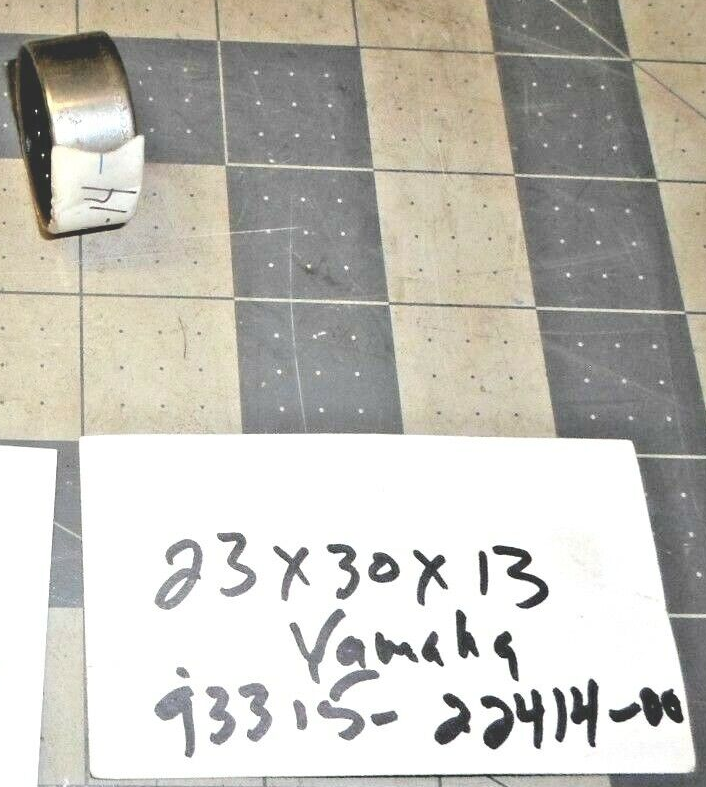 14
23 x 30 x 13
Yamaha
93315-22414-00